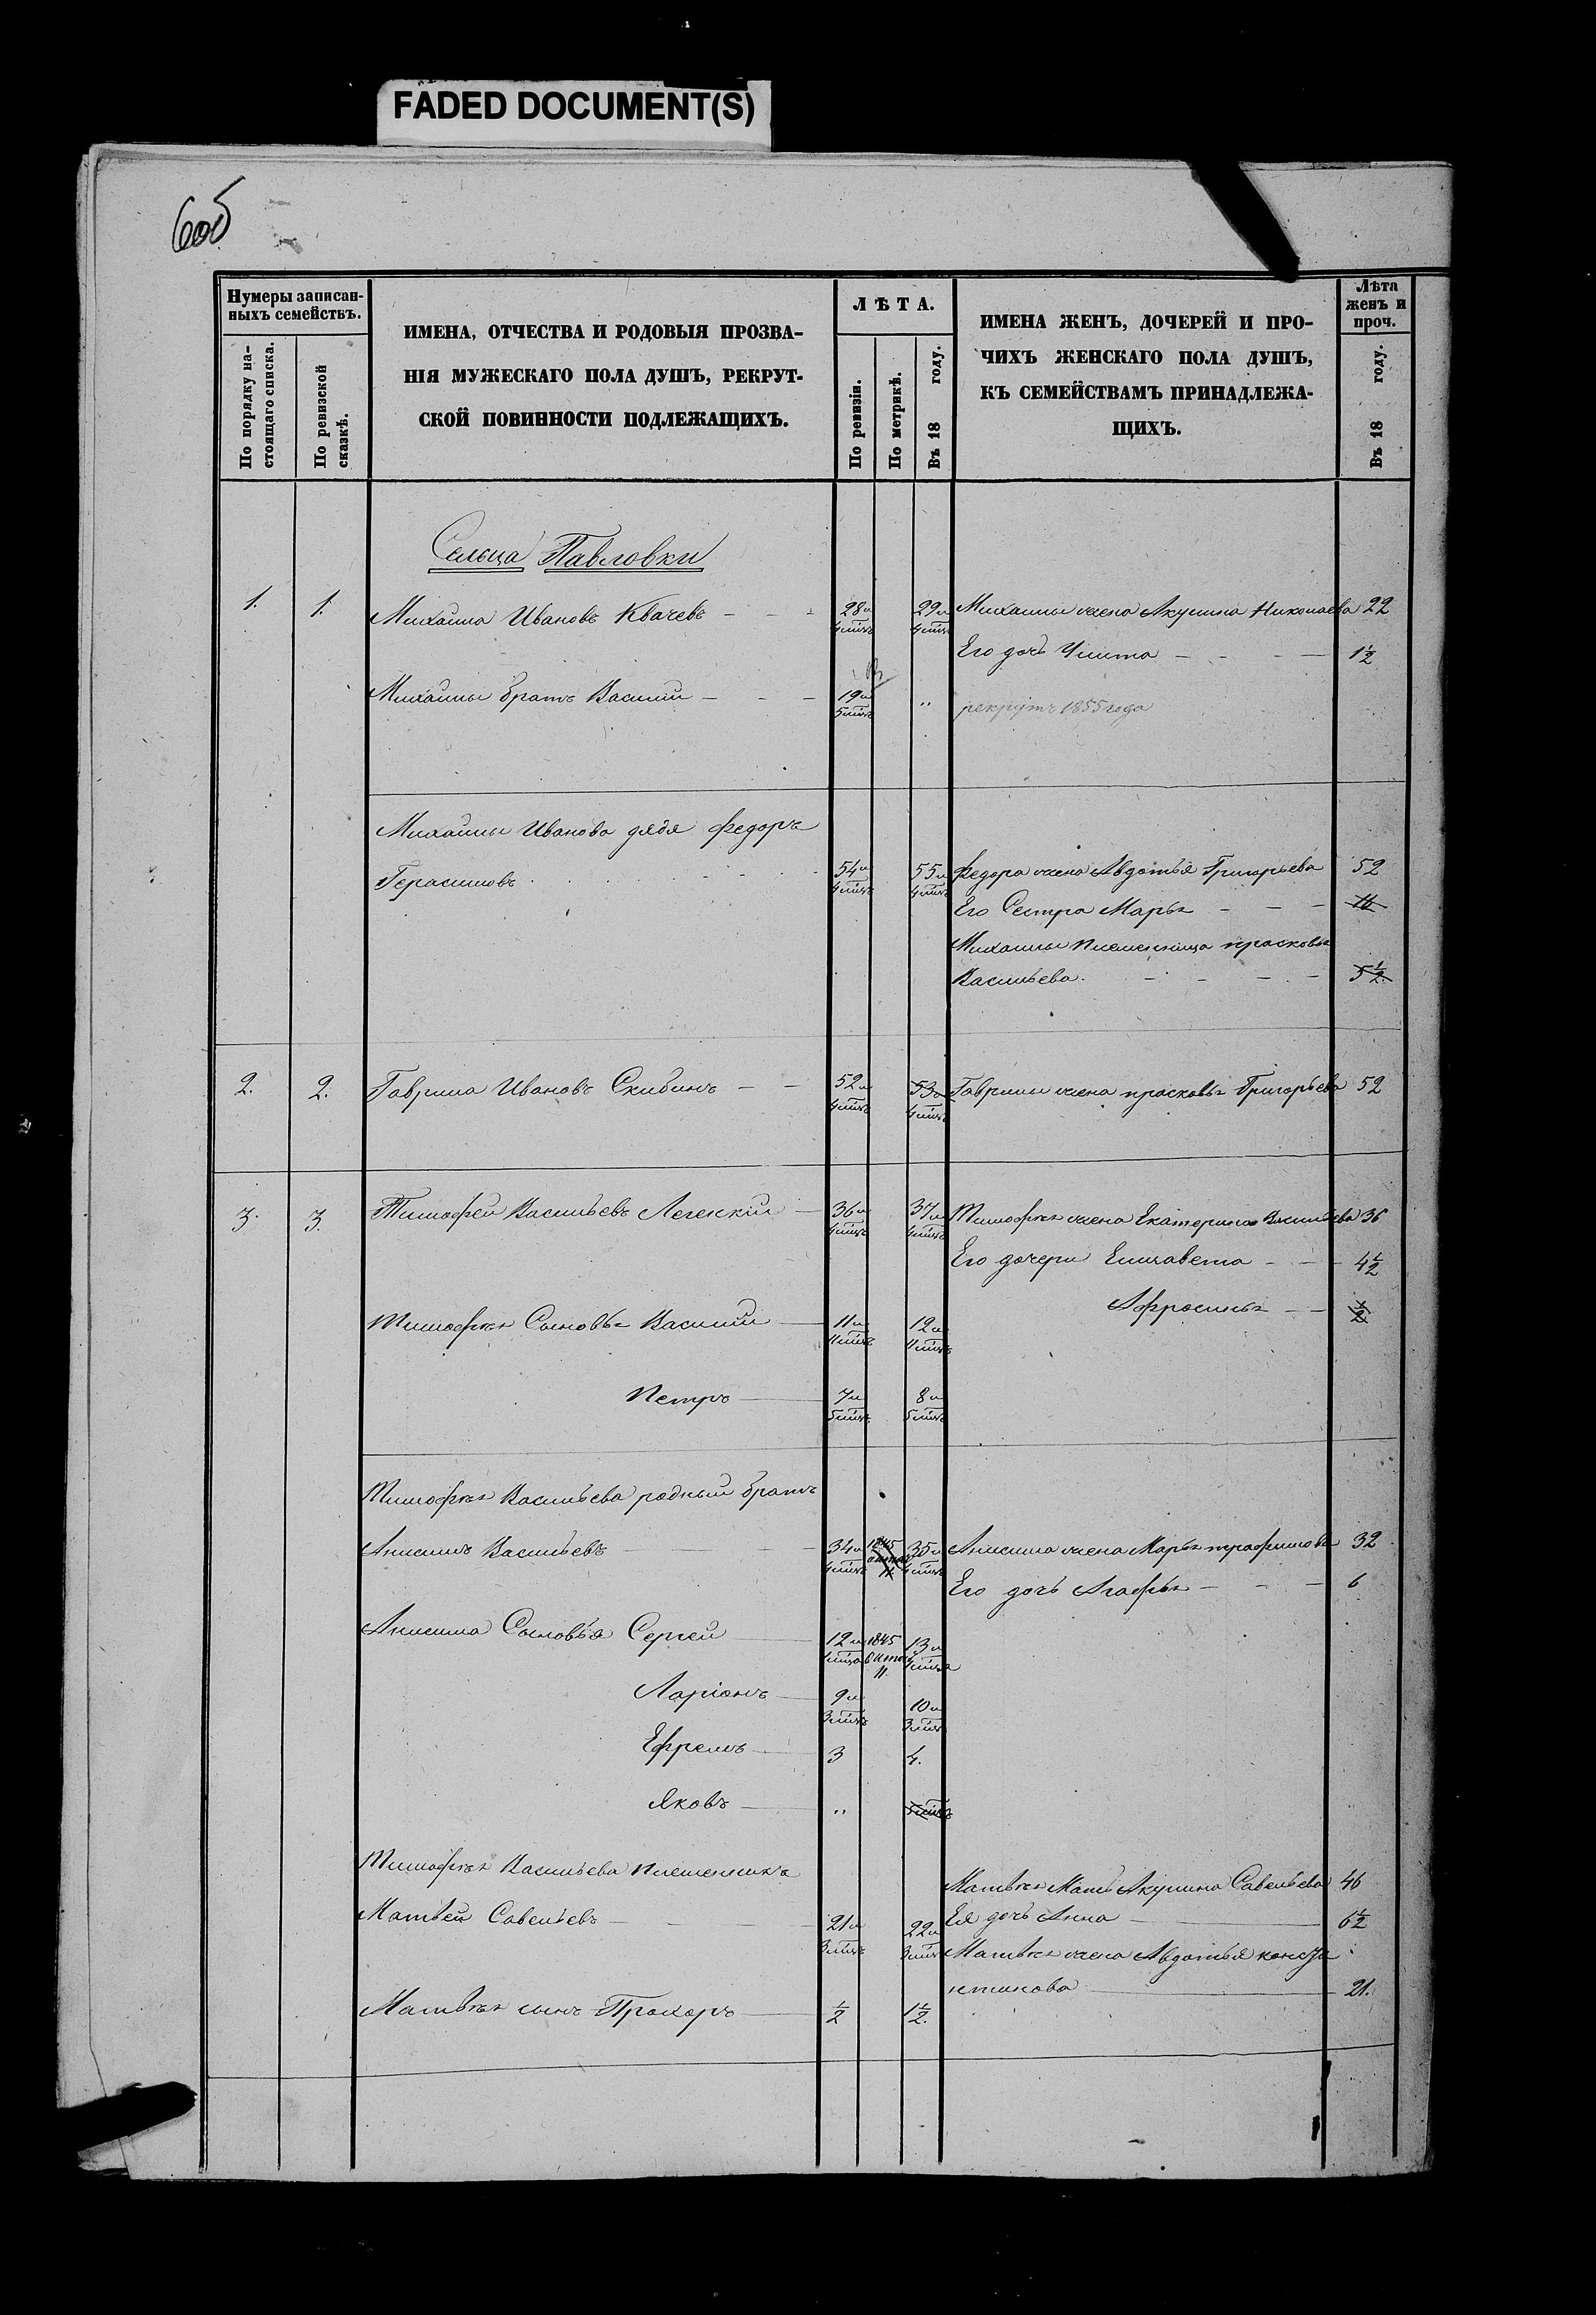 FADED DOCUMENT(S)
605
Нумеры записан-
ныхъ семействъ.
По порядку на-
стоящаго списка.
По ревизской
сказкѣ.
ИМЕНА, ОТЧЕСТВА И РОДОВЫЯ ПРОЗВА-
НІЯ МУЖЕСКАГО ПОЛА ДУШЪ, РЕКРУТ-
СКОЙ ПОВИННОСТИ ПОДЛЕЖАЩИХЪ.
ЛѢТА.
По ревизіи.
По метрикѣ.
Въ 18 году.
ИМЕНА ЖЕНЪ, ДОЧЕРЕЙ И ПРО-
ЧИХЪ ЖЕНСКАГО ПОЛА ДУШЪ,
КЪ СЕМЕЙСТВАМЪ ПРИНАДЛЕЖА-
ЩИХЪ.
Лѣта
женъ и
проч.
Въ 18 году.
Сельца Павловки
1. 1. Михайла Ивановъ Квачевъ 28 и 4 мѣсц 29 и 4 мѣсц Михаилы жена Акулина Николаева 22
Его дочь Улита 1 1/2
Михайлы братъ Василий 19 и 5 мѣсц " рекрутъ 1855 года
Михайлы Иванова дядя Федоръ
Герасимовъ 54 и 4 мѣсц 55 и 4 мѣсц Федора жена Авдотья Григорьева 52
Его Сестра Марья 16
Михаилы племенница прасковья
Васильева 5 1/2
2. 2. Гаврила Ивановъ Скибинъ 52 и 4 мѣсц 53 и 4 мѣсц Гаврилы жена прасковья Григорьева 52
3. 3. Тимофей Васильевъ Легенкий 36 и 4 мѣсц 37 и 4 мѣсц Тимофѣя жена Екатерина Васильева 36
Его дочери Елизавета 4 1/2
Афросинья 1/2
Тимофѣя Сыновья Василий 11 и 11 мѣсц 12 и 11 мѣсц
Петръ 7 и 5 мѣсц 8 и 5 мѣсц
Тимофѣя Васильева родный братъ
Анисимъ Васильевъ 34 и 4 мѣсц 1845 35 и 4 мѣсц Анисима жена Марья трафимова 32
Его дочь Агафья 6
Анисима Сыновья Сергей 12 и 1845 11. 13 и
Ларіонъ 9 и 3 мѣсц 10 и 3 мѣсц
Ефремъ 3 4.
Яковъ " 5 мѣсц
Тимофѣя Васильева племенникъ
Матвѣя Мать Акулина Савельева 46
Матвей Савельевъ 21 и 3 мѣсц 22 и 3 мѣсц Ея дочь Анна 6 1/2
Матвѣя жена Авдотья конста
нтинова 21.
Матвѣя сынъ Прохоръ 1/2 1 1/2.